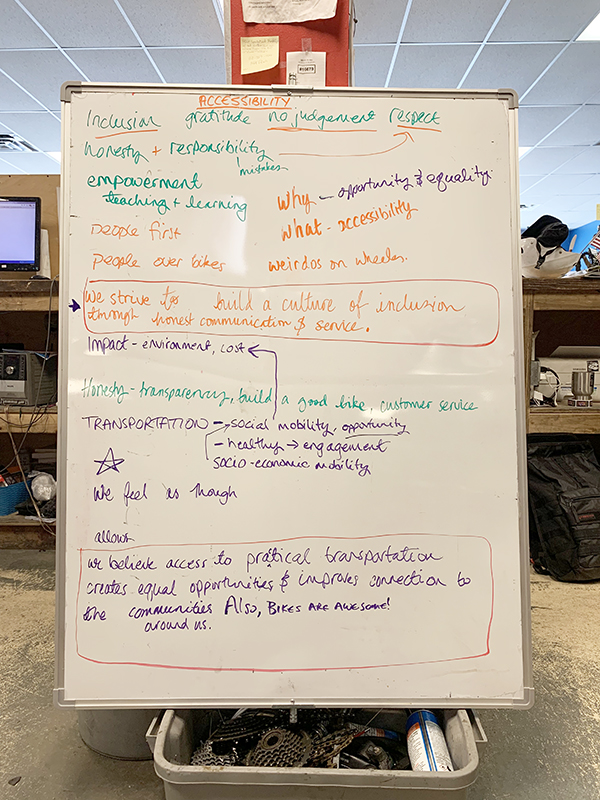 ACCESSIBILITY
Inclusion gratitude no judgement respect
honesty + responsibility
mistakes
empowerment
teaching + learning
Why - opportunity & equality.
What - accessibility
people first
people over bikes weirdos on wheels.
We strive to build a culture of inclusion
through honest communication & service.
Impact - environment, cost
Honesty - transparency, build a good bike, customer service
TRANSPORTATION - social mobility, opportunity
- healthy → engagement
socio-economic mobility
We feel as though
allows
we believe access to pratical transportation
creates equal opportunities & improves connection to
the communities Also, BIKES ARE AWESOME!
around us.